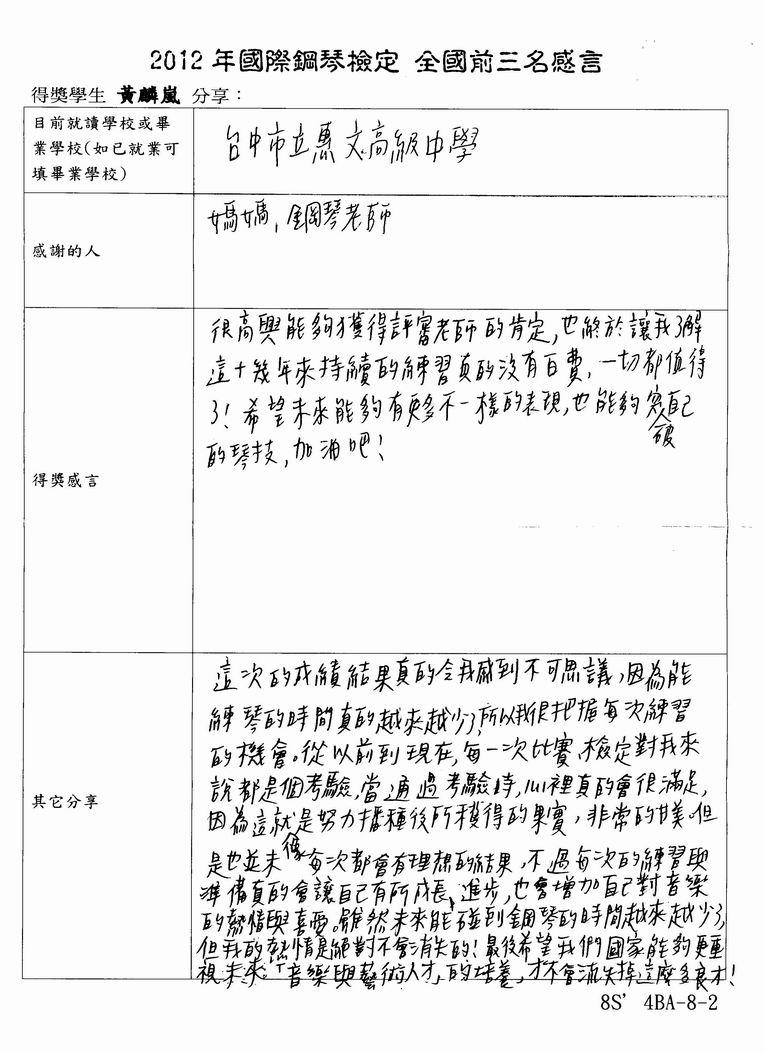 2012 年國際鋼琴檢定 全國前三名感言
得獎學生 黃麟嵐 分享：
目前就讀學校或畢
業學校(如已就業可
填畢業學校)
台中市立惠文高級中學
感謝的人
媽媽, 鋼琴老師
得獎感言
很高興能夠獲得評審老師的肯定, 也終於讓我了解
這十幾年來持續的練習真的沒有白費, 一切都值得
了! 希望未來能夠有更多不一樣的表現, 也能夠 自己
的琴技, 加油吧!
其它分享
這次的成績結果真的令我感到不可思議, 因為能
練琴的時間真的越來越少了, 所以我很把握每次練習
的機會。從以前到現在, 每一次比賽、檢定對我來
說都是個考驗, 當通過考驗時, 心裡真的會很滿足,
因為這就是努力播種後所獲得的果實, 非常的甘美。但
是也並未像每次都會有理想的結果, 不過每次的練習與
準備真的會讓自己有所成長、進步, 也會增加自己對音樂
的熱情與喜愛。雖然未來能碰到鋼琴的時間越來越少了,
但我的熱情是絕對不會消失的! 最後希望我們國家能夠更重
視未來「音樂與藝術人才」的培養, 才不會流失掉這麼多良才!
8S' 4BA-8-2